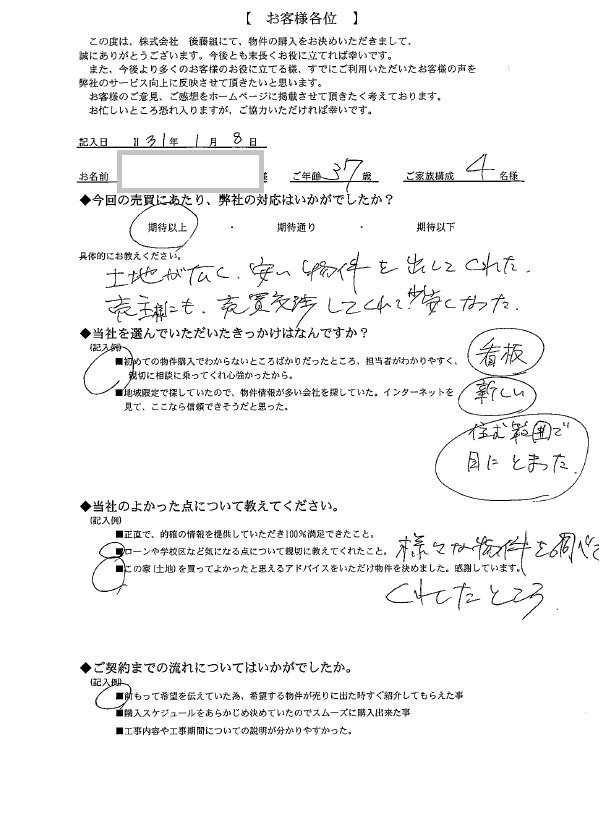 【 お客様各位 】
この度は、株式会社 後藤組にて、物件の購入をお決めいただきまして、
誠にありがとうございます。今後とも末長くお役に立てれば幸いです。
また、今後より多くのお客様のお役に立てる様、すでにご利用いただいたお客様の声を
弊社のサービス向上に反映させて頂きたいと思います。
お客様のご意見、ご感想をホームページに掲載させて頂きたく考えております。
お忙しいところ恐れ入りますが、ご協力いただければ幸いです。
記入日 H 31年 1月 8日
お名前 様 ご年齢 37 歳 ご家族構成 4 名様
◆今回の売買にあたり、弊社の対応はいかがでしたか？
期待以上 ・ 期待通り ・ 期待以下
具体的にお教えください。
土地が広く、安い物件を出してくれた。
売主様にも、売買交渉してくれて安くなった。
◆当社を選んでいただいたきっかけはなんですか？
(記入例)
■初めての物件購入でわからないところばかりだったところ、担当者がわかりやすく、
親切に相談に乗ってくれ心強かったから。
■地域限定で探していたので、物件情報が多い会社を探していた。インターネットを
見て、ここなら信頼できそうだと思った。
看板
新しい
住む範囲で
目にとまった。
◆当社のよかった点について教えてください。
(記入例)
■正直で、的確の情報を提供していただき100％満足できたこと。
■ローンや学校区など気になる点について親切に教えてくれたこと。
■この家(土地)を買ってよかったと思えるアドバイスをいただけ物件を決めました。感謝しています。
様々な物件を調べて
くれたところ。
◆ご契約までの流れについてはいかがでしたか。
(記入例)
■前もって希望を伝えていた為、希望する物件が売りに出た時すぐ紹介してもらえた事
■購入スケジュールをあらかじめ決めていたのでスムーズに購入出来た事
■工事内容や工事期間についての説明が分かりやすかった。